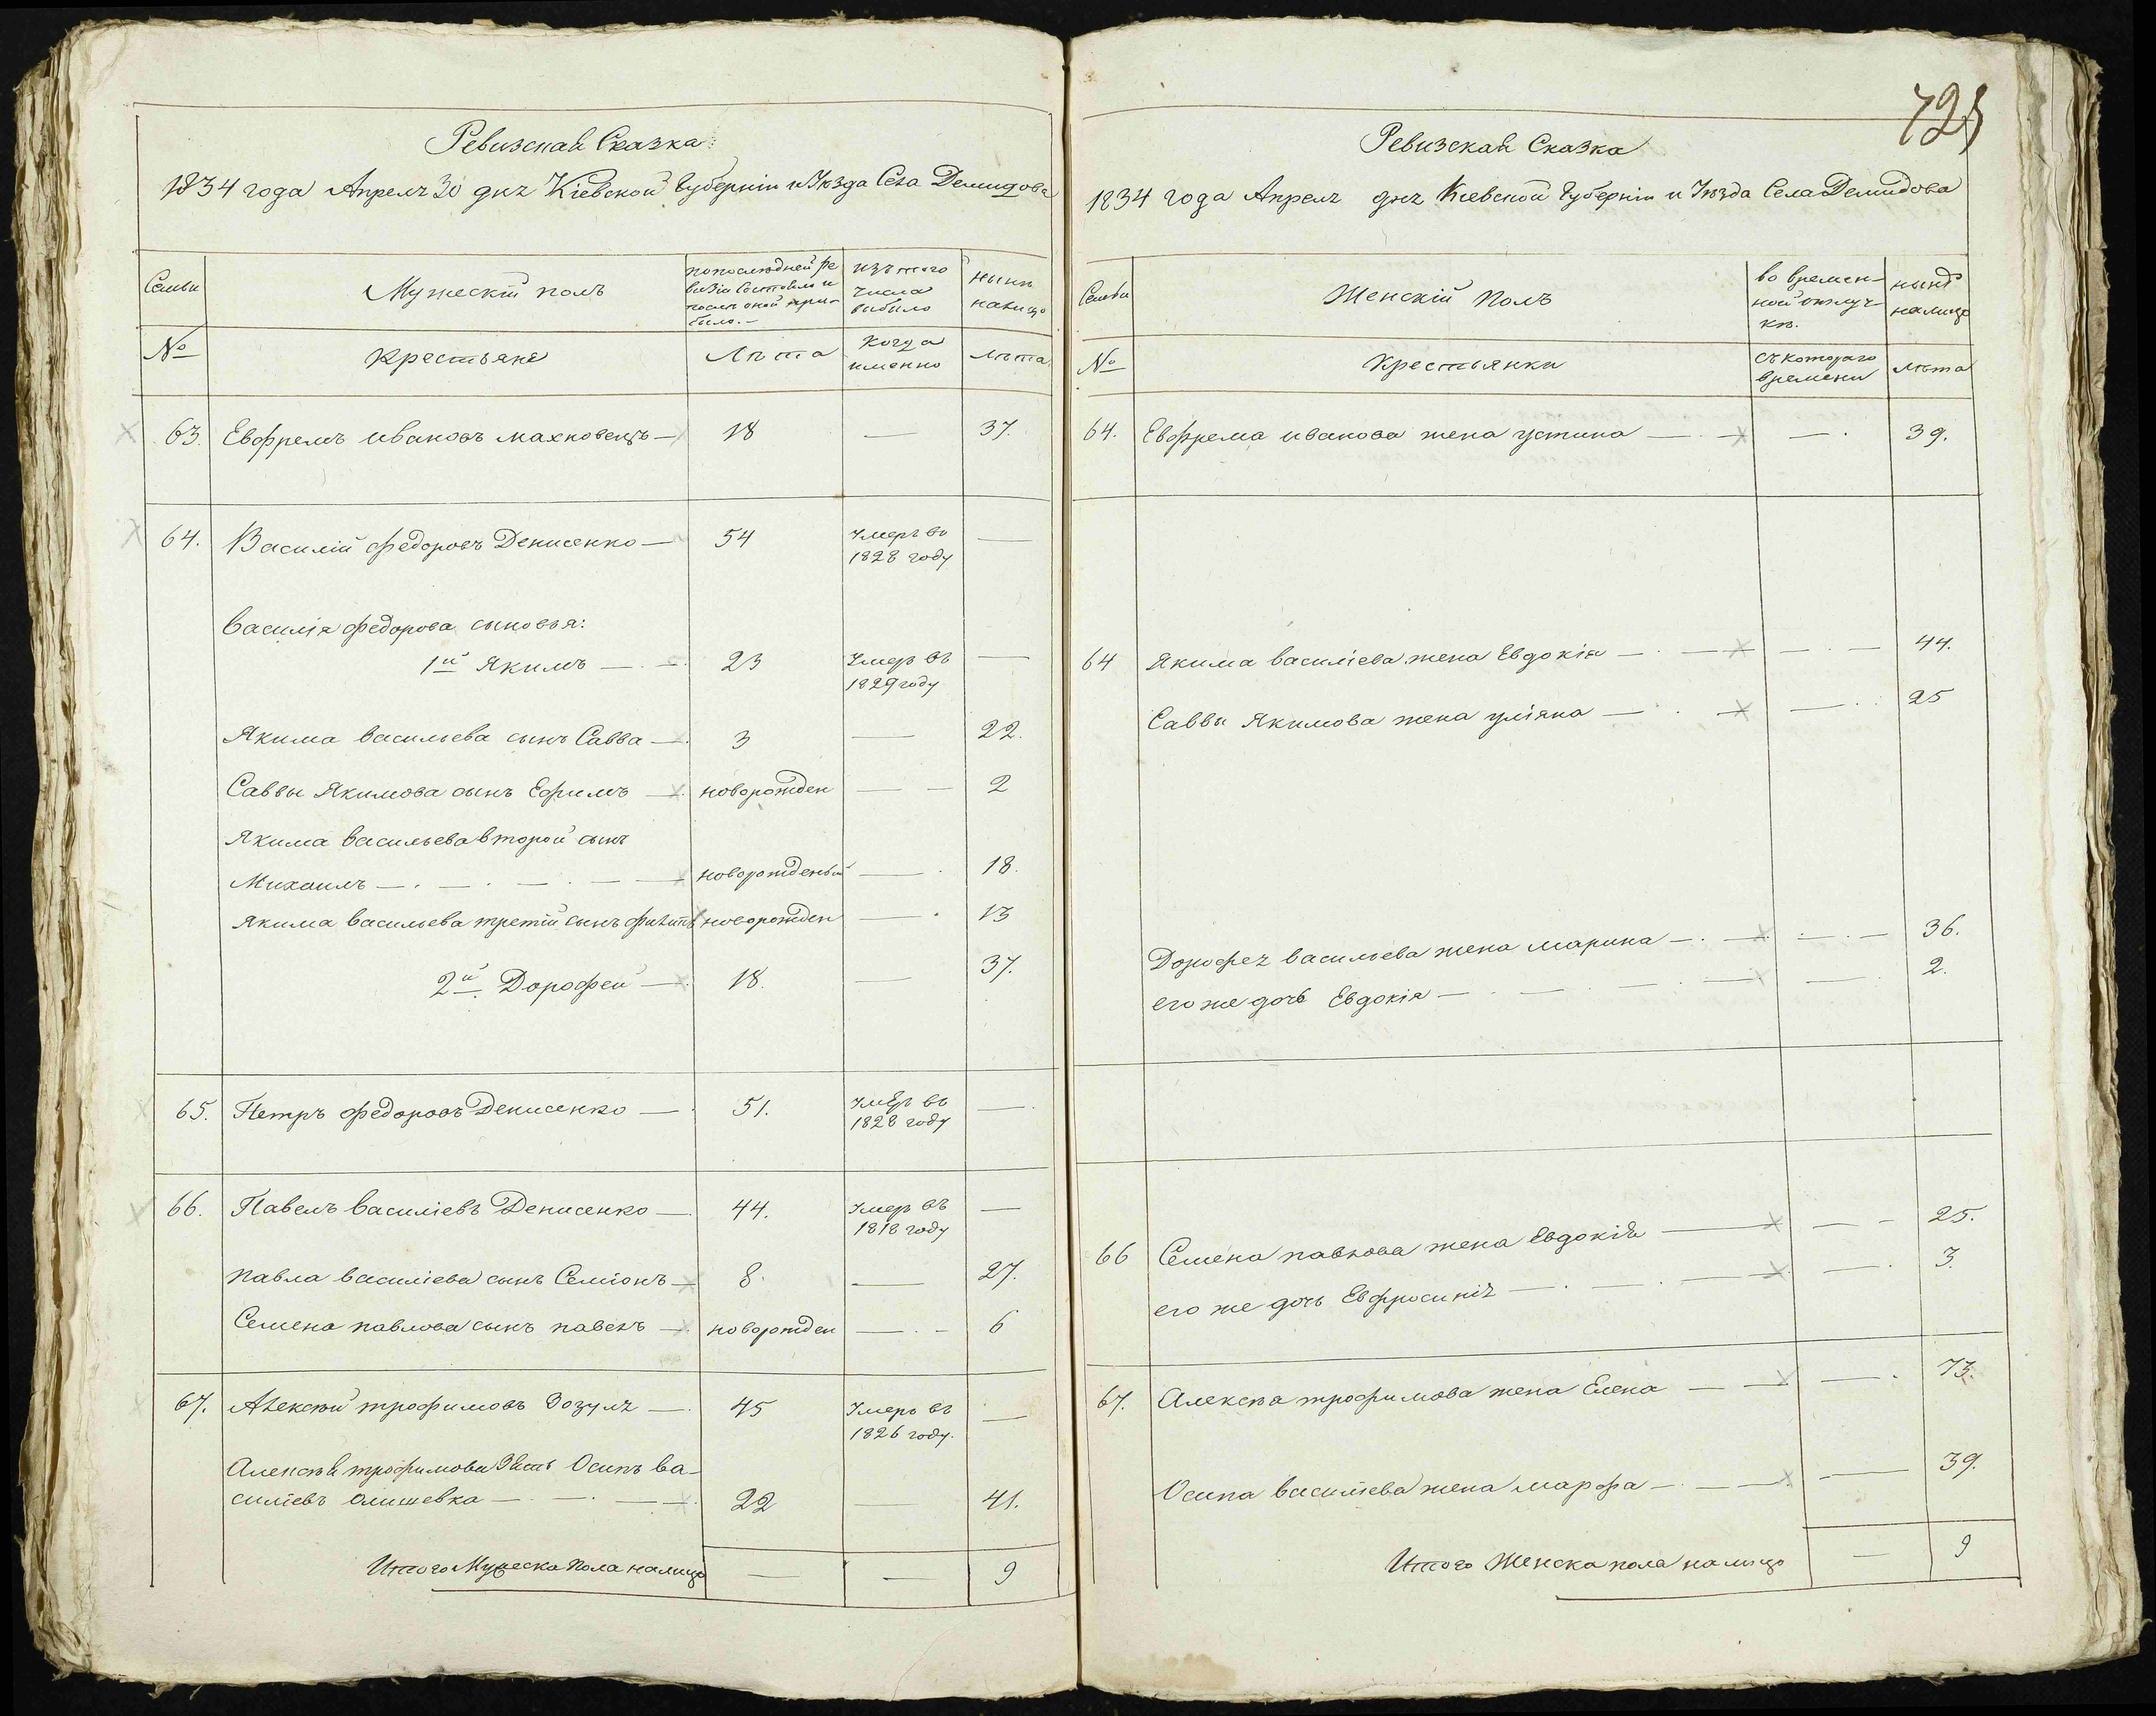 Ревизская Сказка
1834 года Апреля 30 дня Кіевской Губерніи и Уѣзда Села Демидова
Семьи
Мужескій полъ
по последней ре
визіи состояло и
после оной при-
было.
изъ того
числа
выбыло
ныне
налицо
№
Крестьяне
Лѣта
Когда
именно
лѣта
63. Евфремъ ивановъ махновецъ — 18 — 37.
64. Василій федоровъ Денисенко — 54 Умеръ въ —
1828 году
Василія федорова сыновья:
1й Якимъ — 23 Умеръ въ —
1829 году
Якима васильева сынъ Савва — 3 — 22.
Саввы Якимова сынъ Ефимъ — новорожден — — 2
Якима васильева второй сынъ
Михаилъ — . — . — . — — новорожденый — . 18.
Якима васильева третій сынъ филипъ новорожден — . 13
2й Дорофей — 18. — 37.
65. Петръ федоровъ Денисенко — 51. Умеръ въ —
1828 году
66. Павелъ василіевъ Денисенко — 44. Умеръ въ —
1818 году
павла василіева сынъ Семіонъ — 8. — 27.
Семена павлова сынъ павелъ — новорожден — . — 6
67. Алексѣй трофимовъ Зозуля — 45 Умеръ въ —
1826 году.
Алексѣя трофимова Зять Осипъ ва-
силіевъ олишевка — . — . — 22 41.
Итого Мужеска пола налицо — — 9
725
Ревизская Сказка
1834 года Апреля дня Кіевской Губерніи и Уѣзда Села Демидова
Семьи
Женскій полъ
во времен-
ной отлуч-
кѣ.
ныне
налицо
№
Крестьянки
съ котораго
времени
лѣта
64. Евфрема иванова жена устина — . — — . 39.
64 Якима василіева жена Евдокія — . — — . — 44.
Саввы Якимова жена уліяна — . — — . 25
Дорофея васильева жена марина — . — — . — 36.
его же дочь Евдокія — . — . — . — — 2.
66 Семена павлова жена Евдокія — — — 25.
его же дочь Евфросинія — . — . — — . 3.
67. Алексѣя трофимова жена Елена — — — . 73.
Осипа василіева жена марфа — . — — 39.
Итого Женска пола налицо — 9